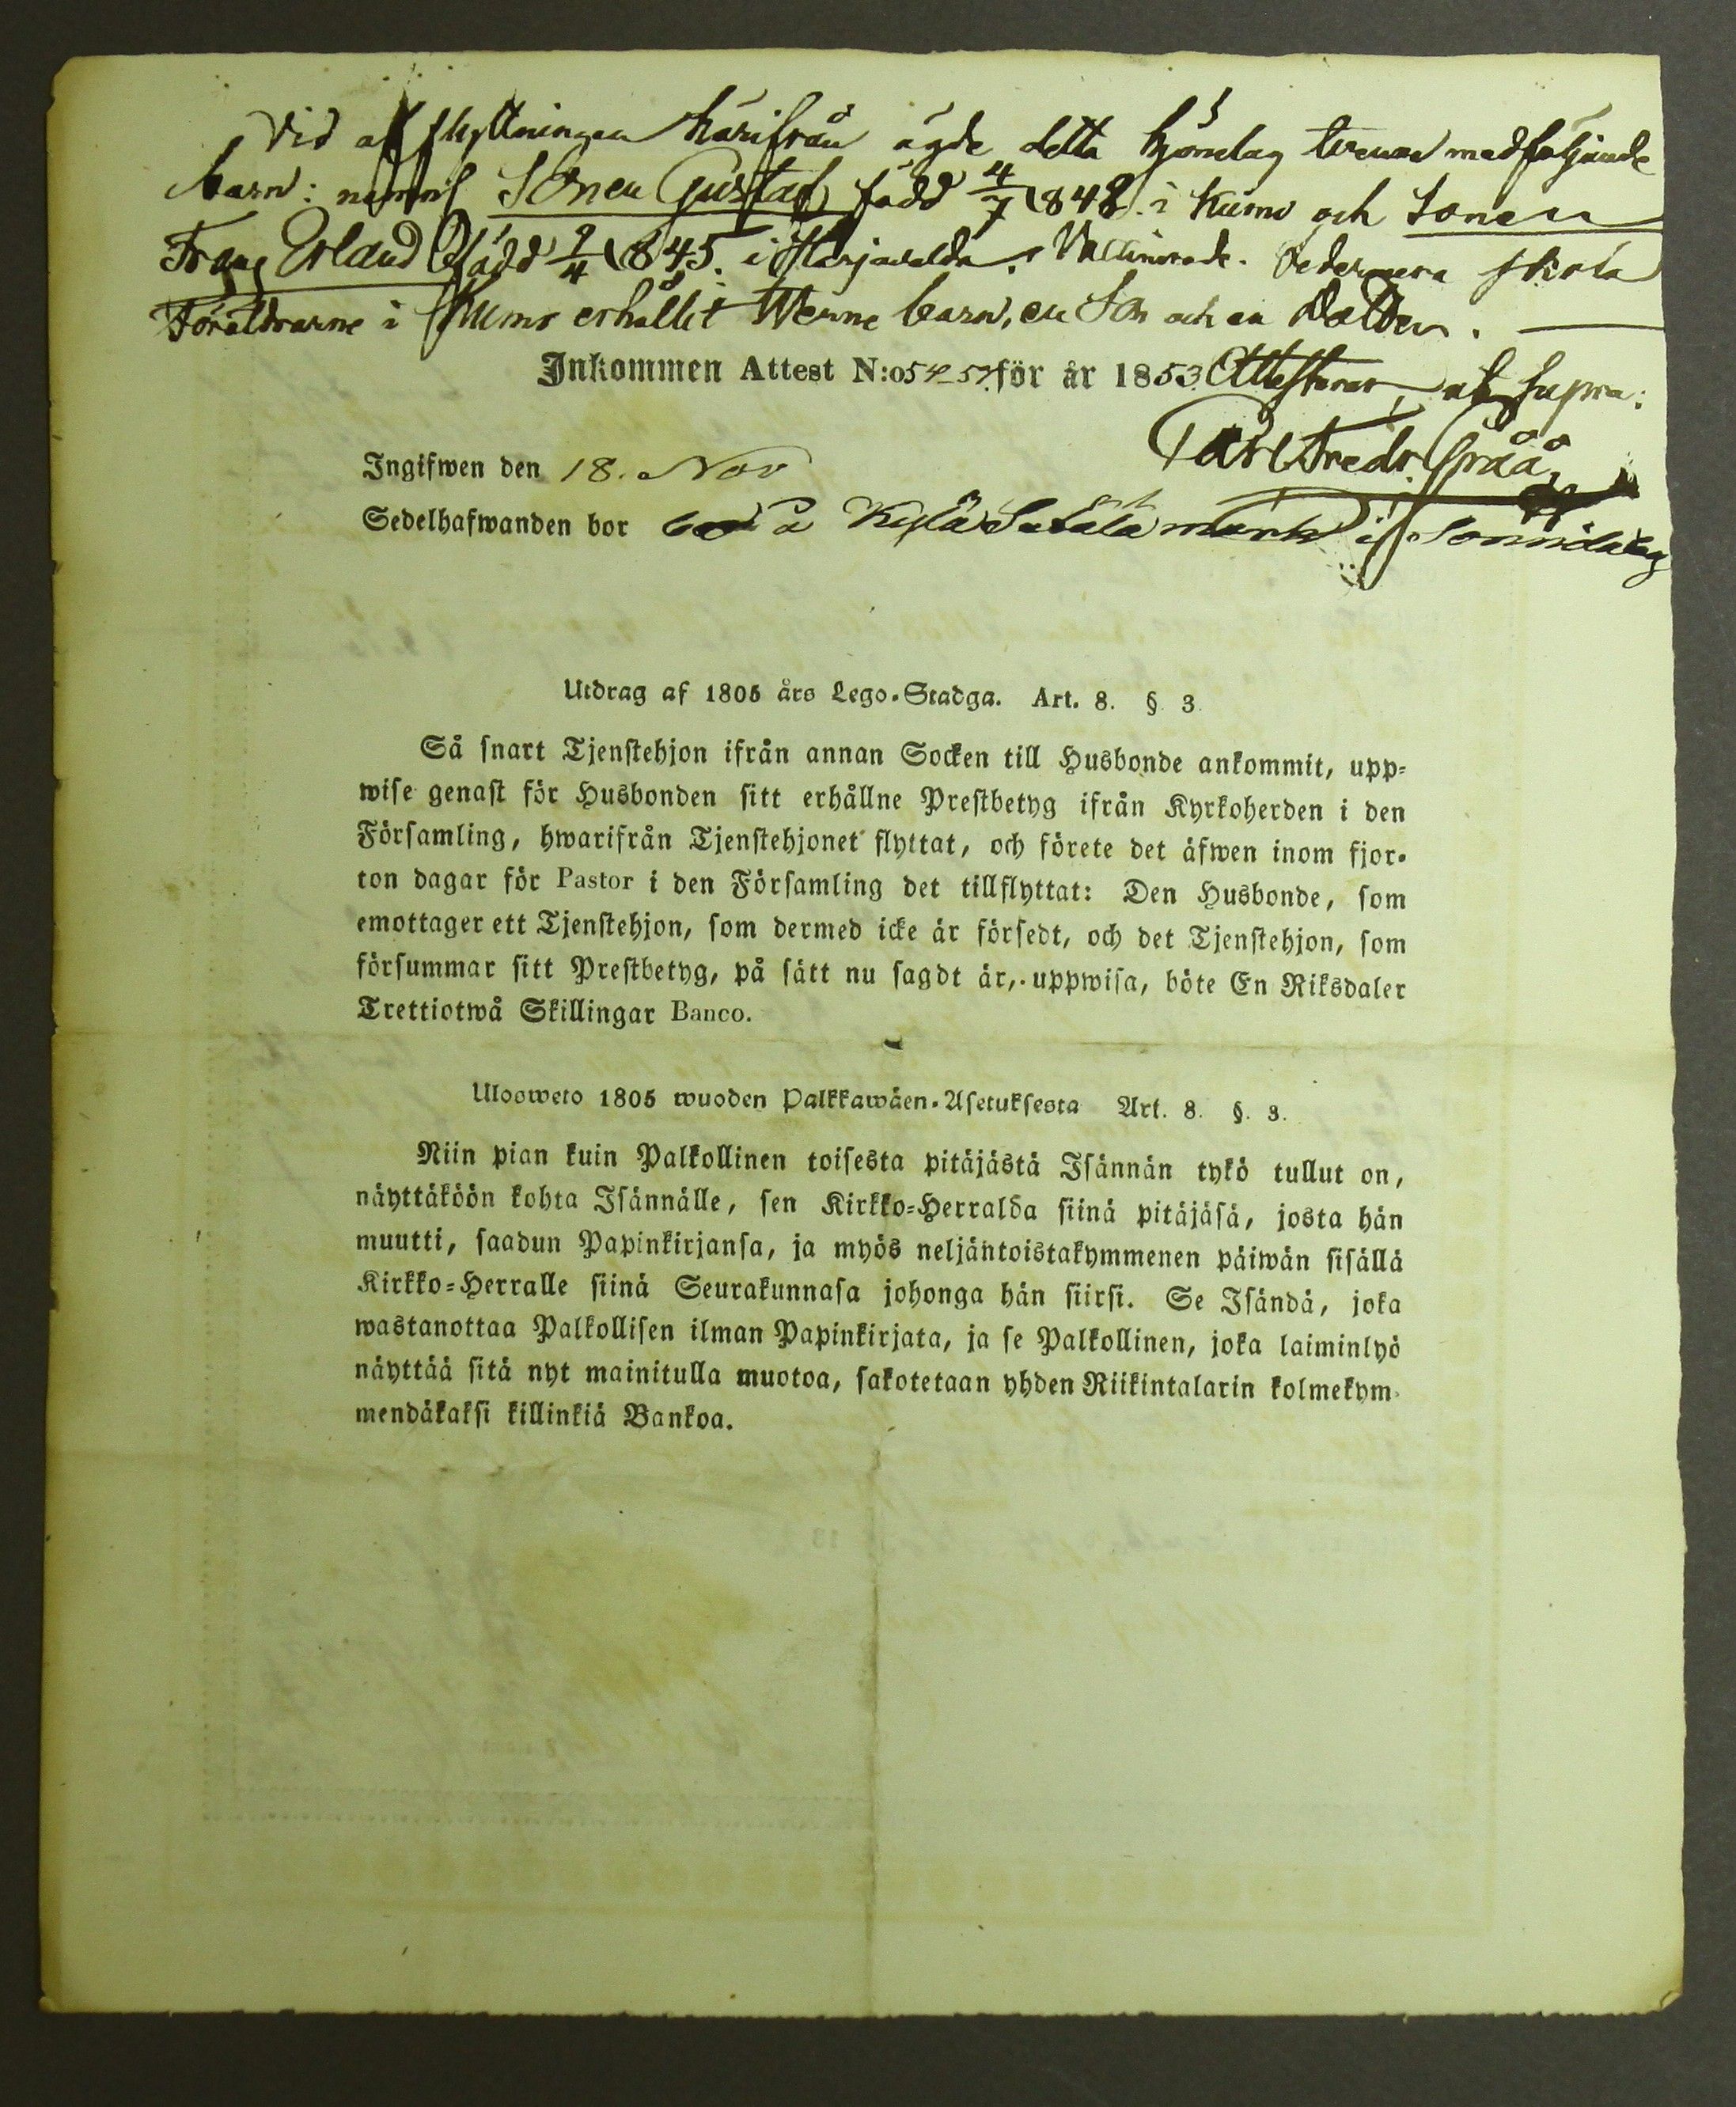 Vid afflyttningen härifrån ägde detta hjonelag tvenne medföljande
barn: neml. Sonen Gustaf född 4/7 1848. i Kumo och Sonen
Frans Erland född 2/4 1845. i Harjavalda. Vaccinerade. Sedermera skola
Föräldrarne i Kumo erhållit tvenne barn, en Son och en Dotter.
Inkommen Attest N:o 54-57. för år 1853. Attesterar, ut supra:
Carl Fredr. Gråå
Ingifwen den 18. Nov
Sedelhafwanden bor på Kylä Sabala mark i
Utdrag af 1805 års Lego-Stadga. Art. 8. § 3.
Så snart Tjenstehjon ifrån annan Socken till Husbonde ankommit, upp=
wise genast för Husbonden sitt erhållne Prestbetyg ifrån Kyrkoherden i den
Församling, hwarifrån Tjenstehjonet flyttat, och förete det äfwen inom fjor-
ton dagar för Pastor i den Församling det tillflyttat: Den Husbonde, som
emottager ett Tjenstehjon, som dermed icke är försedt, och det Tjenstehjon, som
försummar sitt Prestbetyg, på sätt nu sagdt är, uppwisa, böte En Riksdaler
Trettiotwå Skillingar Banco.
Ulosweto 1805 wuoden Palkkawäen-Asetuksesta Art. 8. §. 3.
Niin pian kuin Palkollinen toisesta pitäjästä Isännän tykö tullut on,
näyttäköön kohta Isännälle, sen Kirkko=Herralda siinä pitäjäsä, josta hän
muutti, saadun Papinkirjansa, ja myös neljäntoistakymmenen päiwän sisällä
Kirkko=Herralle siinä Seurakunnasa johonga hän siirsi. Se Isändä, joka
wastanottaa Palkollisen ilman Papinkirjata, ja se Palkollinen, joka laiminlyö
näyttää sitä nyt mainitulla muotoa, sakotetaan yhden Riikintalarin kolmekym-
mendäkaksi killinkiä Bankoa.